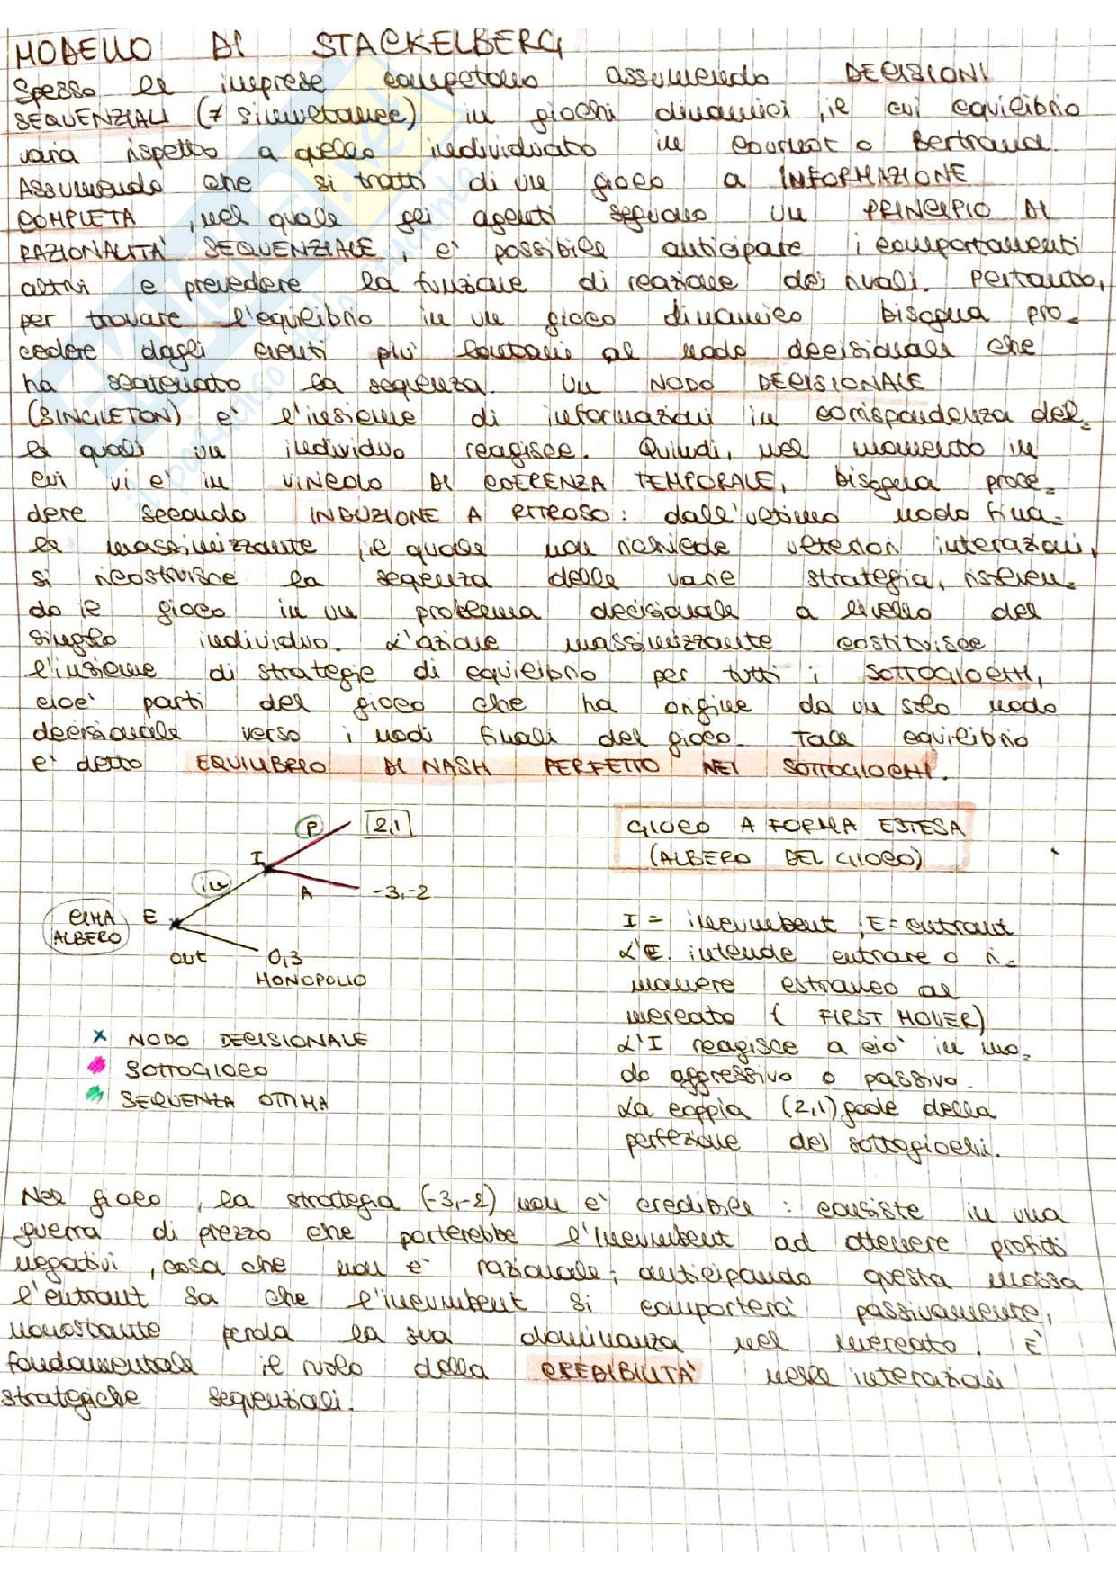 MODELLO DI STACKELBERG
Spesso le imprese competono assumendo DECISIONI
SEQUENZIALI (≠ simultanee) in giochi dinamici, il cui equilibrio
varia rispetto a quello individuato in Cournot o Bertrand.
Assumendo che si tratti di un gioco a INFORMAZIONE
COMPLETA, nel quale gli agenti seguono un PRINCIPIO DI
RAZIONALITA' SEQUENZIALE, e' possibile anticipare i comportamenti
altrui e prevedere la funzione di reazione dei rivali. Pertanto,
per trovare l'equilibrio in un gioco dinamico bisogna pro-
cedere dagli eventi piu' lontani al nodo decisionale che
ha scatenato la sequenza. Un NODO DECISIONALE
(SINGLETON) e' l'insieme di informazioni in corrispondenza del-
le quali un individuo reagisce. Quindi, nel momento in
cui vi e' un VINCOLO DI COERENZA TEMPORALE, bisogna proce-
dere secondo INDUZIONE A RITROSO: dall'ultimo nodo fina-
le massimizzante, il quale non richiede ulteriori interazioni,
si ricostruisce la sequenza delle varie strategie, risolven-
do il gioco in un problema decisionale a livello del
singolo individuo. L'azione massimizzante costituisce
l'insieme di strategie di equilibrio per tutti i SOTTOGIOCHI,
cioe' parti del gioco che ha origine da un solo nodo
decisionale verso i nodi finali del gioco. Tale equilibrio
e' detto EQUILIBRIO DI NASH PERFETTO NEI SOTTOGIOCHI.
P 2,1
I
in
A -3,-2
CIMA ALBERO E
out 0,3
MONOPOLIO
x NODO DECISIONALE
SOTTOGIOCO
SEQUENZA OTTIMA
GIOCO A FORMA ESTESA
(ALBERO DEL GIOCO)
I = incumbent, E = entrant
L'E. intende entrare o ri-
manere estraneo al
mercato (FIRST MOVER)
L'I reagisce a cio' in mo-
do aggressivo o passivo.
La coppia (2,1) gode della
perfezione dei sottogiochi.
Nel gioco, la strategia (-3,-2) non e' credibile: consiste in una
guerra di prezzo che porterebbe l'incumbent ad ottenere profitti
negativi, cosa che non e' razionale; anticipando questa mossa
l'entrant sa che l'incumbent si comportera' passivamente,
nonostante perda la sua dominanza nel mercato. E'
fondamentale il ruolo della CREDIBILITA' nelle interazioni
strategiche sequenziali.